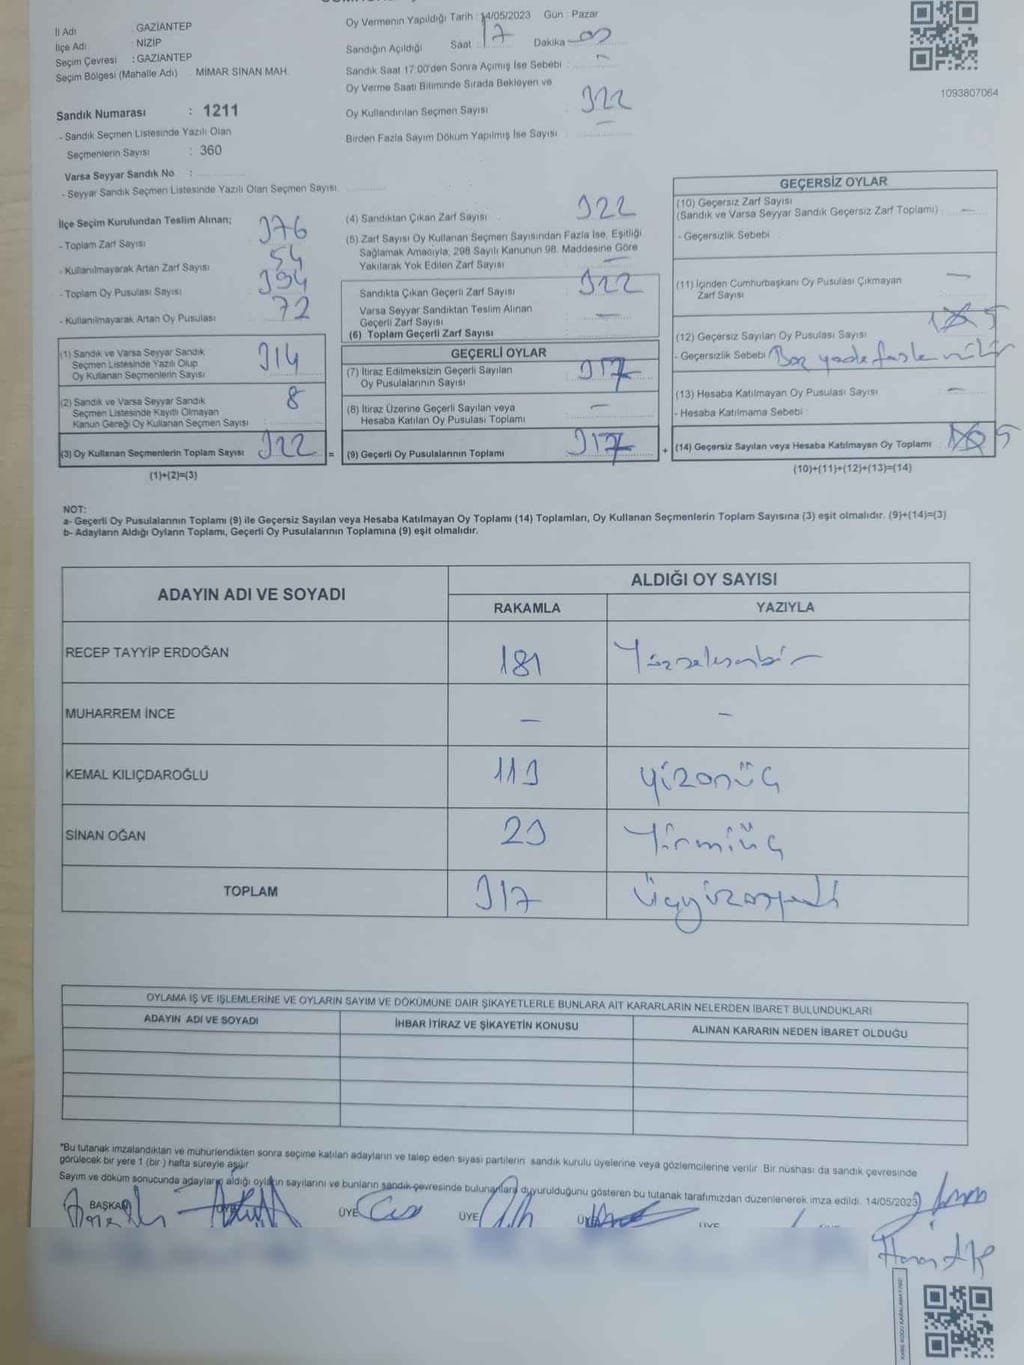 İl Adı : GAZİANTEP
İlçe Adı : NİZİP
Seçim Çevresi : GAZİANTEP
Seçim Bölgesi (Mahalle Adı) MİMAR SİNAN MAH.
Sandık Numarası : 1211
- Sandık Seçmen Listesinde Yazılı Olan
Seçmenlerin Sayısı : 360
Varsa Seyyar Sandık No :
- Seyyar Sandık Seçmen Listesinde Yazılı Olan Seçmen Sayısı
Oy Vermenin Yapıldığı Tarih : 14/05/2023 Gün : Pazar
Sandığın Açıldığı Saat : 17 Dakika : 00
Sandık Saat 17:00'den Sonra Açımış İse Sebebi :
Oy Verme Saati Bitiminde Sırada Bekleyen ve
Oy Kullandırılan Seçmen Sayısı 322
Birden Fazla Sayım Döküm Yapılmış İse Sayısı —
1093807064
İlçe Seçim Kurulundan Teslim Alınan;
- Toplam Zarf Sayısı 376
- Kullanılmayarak Artan Zarf Sayısı 54
- Toplam Oy Pusulası Sayısı 394
- Kullanılmayarak Artan Oy Pusulası 72
(1) Sandık ve Varsa Seyyar Sandık
Seçmen Listesinde Yazılı Olup
Oy Kullanan Seçmenlerin Sayısı 314
(2) Sandık ve Varsa Seyyar Sandık
Seçmen Listesinde Kayıtlı Olmayan
Kanun Gereği Oy Kullanan Seçmen Sayısı 8
(3) Oy Kullanan Seçmenlerin Toplam Sayısı 322 =
(1)+(2)=(3)
(4) Sandıktan Çıkan Zarf Sayısı 322
(5) Zarf Sayısı Oy Kullanan Seçmen Sayısından Fazla İse, Eşitliği
Sağlamak Amacıyla, 298 Sayılı Kanunun 98. Maddesine Göre
Yakılarak Yok Edilen Zarf Sayısı —
Sandıkta Çıkan Geçerli Zarf Sayısı 322
Varsa Seyyar Sandıktan Teslim Alınan
Geçerli Zarf Sayısı —
(6) Toplam Geçerli Zarf Sayısı
GEÇERLİ OYLAR
(7) İtiraz Edilmeksizin Geçerli Sayılan
Oy Pusulalarının Sayısı 317
(8) İtiraz Üzerine Geçerli Sayılan veya
Hesaba Katılan Oy Pusulası Toplamı —
(9) Geçerli Oy Pusulalarının Toplamı 317 +
GEÇERSİZ OYLAR
(10) Geçersiz Zarf Sayısı
(Sandık ve Varsa Seyyar Sandık Geçersiz Zarf Toplamı) —
- Geçersizlik Sebebi
(11) İçinden Cumhurbaşkanı Oy Pusulası Çıkmayan
Zarf Sayısı —
(12) Geçersiz Sayılan Oy Pusulası Sayısı 5
- Geçersizlik Sebebi
(13) Hesaba Katılmayan Oy Pusulası Sayısı —
- Hesaba Katılmama Sebebi
(14) Geçersiz Sayılan veya Hesaba Katılmayan Oy Toplamı 5
(10)+(11)+(12)+(13)=(14)
NOT:
a- Geçerli Oy Pusulalarının Toplamı (9) ile Geçersiz Sayılan veya Hesaba Katılmayan Oy Toplamı (14) Toplamları, Oy Kullanan Seçmenlerin Toplam Sayısına (3) eşit olmalıdır. (9)+(14)=(3)
b- Adayların Aldığı Oyların Toplamı, Geçerli Oy Pusulalarının Toplamına (9) eşit olmalıdır.
ADAYIN ADI VE SOYADI
ALDIĞI OY SAYISI
RAKAMLA YAZIYLA
RECEP TAYYİP ERDOĞAN 181 Yüzseksenbir
MUHARREM İNCE — —
KEMAL KILIÇDAROĞLU 113 yüzonüç
SİNAN OĞAN 23 Yirmiüç
TOPLAM 317 Üçyüzonyedi
OYLAMA İŞ VE İŞLEMLERİNE VE OYLARIN SAYIM VE DÖKÜMÜNE DAİR ŞİKAYETLERLE BUNLARA AİT KARARLARIN NELERDEN İBARET BULUNDUKLARI
ADAYIN ADI VE SOYADI İHBAR İTİRAZ VE ŞİKAYETİN KONUSU ALINAN KARARIN NEDEN İBARET OLDUĞU
*Bu tutanak imzalandıktan ve mühürlendikten sonra seçime katılan adayların ve talep eden siyasi partilerin sandık kurulu üyelerine veya gözlemcilerine verilir. Bir nüshası da sandık çevresinde
görülecek bir yere 1 (bir) hafta süreyle asılır.
Sayım ve döküm sonucunda adayların aldığı oyların sayılarını ve bunların sandık çevresinde bulunanlara duyurulduğunu gösteren bu tutanak tarafımızdan düzenlenerek imza edildi. 14/05/2023
BAŞKAN ÜYE ÜYE ÜYE ÜYE ÜYE